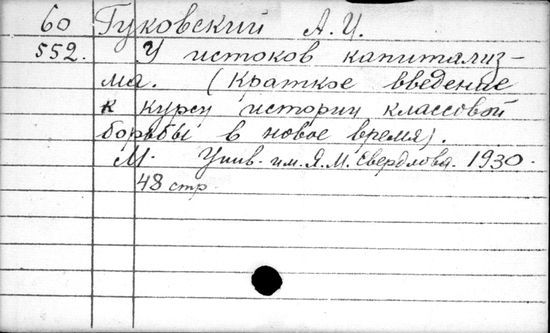 60 Гуковский А. И.
552. У истоков капитализ-
ма. (Краткое введение
к курсу истории классовой
борьбы в новое время).
М. Унив. им. Я. М. Свердлова. 1930.
48 стр